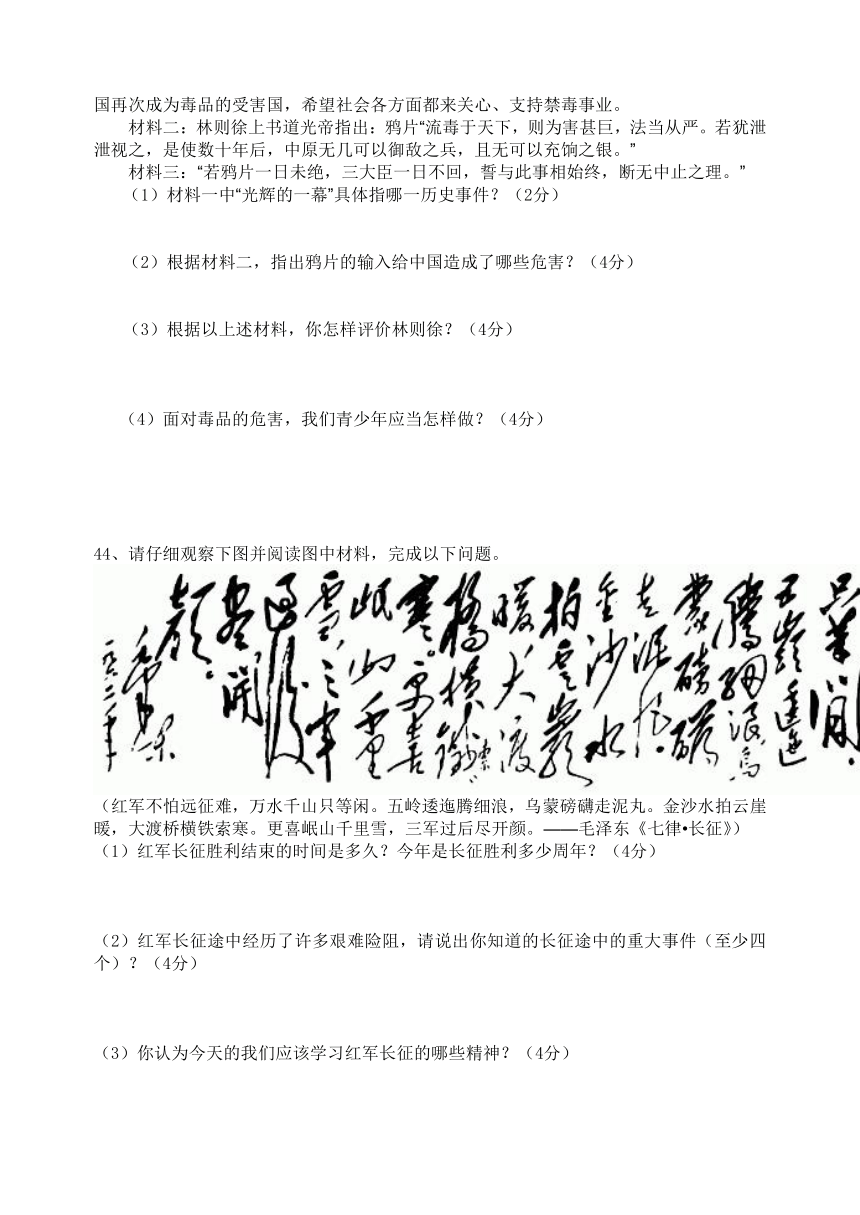 国再次成为毒品的受害国，希望社会各方面都来关心、支持禁毒事业。
材料二：林则徐上书道光帝指出：鸦片“流毒于天下，则为害甚巨，法当从严。若犹泄
泄视之，是使数十年后，中原无几可以御敌之兵，且无可以充饷之银。”
材料三：“若鸦片一日未绝，三大臣一日不回，誓与此事相始终，断无中止之理。”
（1）材料一中“光辉的一幕”具体指哪一历史事件？（2分）
（2）根据材料二，指出鸦片的输入给中国造成了哪些危害？（4分）
（3）根据以上述材料，你怎样评价林则徐？（4分）
（4）面对毒品的危害，我们青少年应当怎样做？（4分）
44、请仔细观察下图并阅读图中材料，完成以下问题。
只等闲
五岭逶迤
腾细浪乌
蒙磅礴
走泥丸
金沙水
拍云崖
暖大渡
桥横铁索
寒更喜
岷山千里
雪三军
过后
尽开
颜
毛泽东
一九六二年
（红军不怕远征难，万水千山只等闲。五岭逶迤腾细浪，乌蒙磅礴走泥丸。金沙水拍云崖
暖，大渡桥横铁索寒。更喜岷山千里雪，三军过后尽开颜。——毛泽东《七律•长征》）
（1）红军长征胜利结束的时间是多久？今年是长征胜利多少周年？（4分）
（2）红军长征途中经历了许多艰难险阻，请说出你知道的长征途中的重大事件（至少四
个）？（4分）
（3）你认为今天的我们应该学习红军长征的哪些精神？（4分）